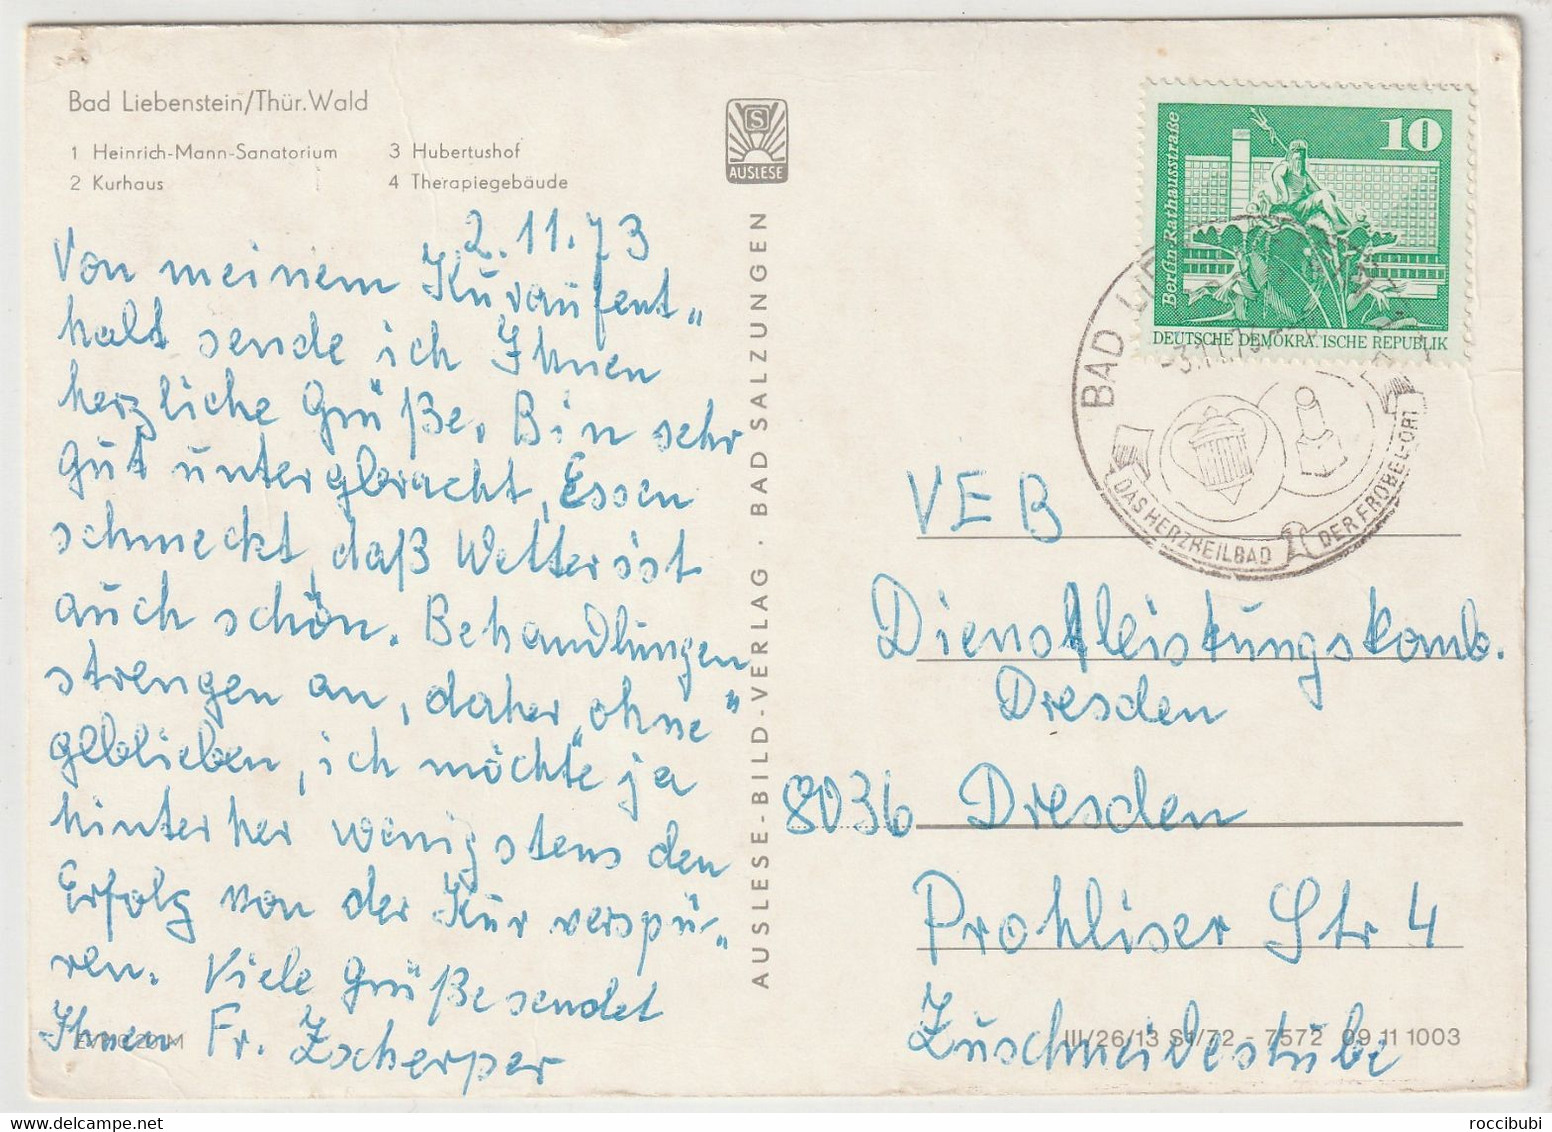 Bad Liebenstein/Thür. Wald
1 Heinrich-Mann-Sanatorium
2 Kurhaus
3 Hubertushof
4 Therapiegebäude
S
AUSLESE
10
Berlin-Rathausstraße
DEUTSCHE DEMOKRATISCHE REPUBLIK
BAD LIEBENSTEIN
-3.11.73
DAS HERZHEILBAD
DER FRÖBEL-ORT
2.11.73
Von meinem Kuraufent"
halt sende ich Ihnen
herzliche Grüße. Bin sehr
gut untergebracht, Essen
schmeckt, daß Wetter ist
auch schön. Behandlungen
strengen an, daher „ohne"
geblieben, ich möchte ja
hinterher wenigstens den
Erfolg von der Kur verspü-"
ren. Viele Grüße sendet
Ihnen Fr. Zscherper
AUSLESE-BILD-VERLAG · BAD SALZUNGEN
VEB
Dienstleistungskomb.
Dresden
8036 Dresden
Prohliser Str 4
Zuschneidestube
III/26/13 S1/72 - 7572 09 11 1003
roccibubi
delcampe.net